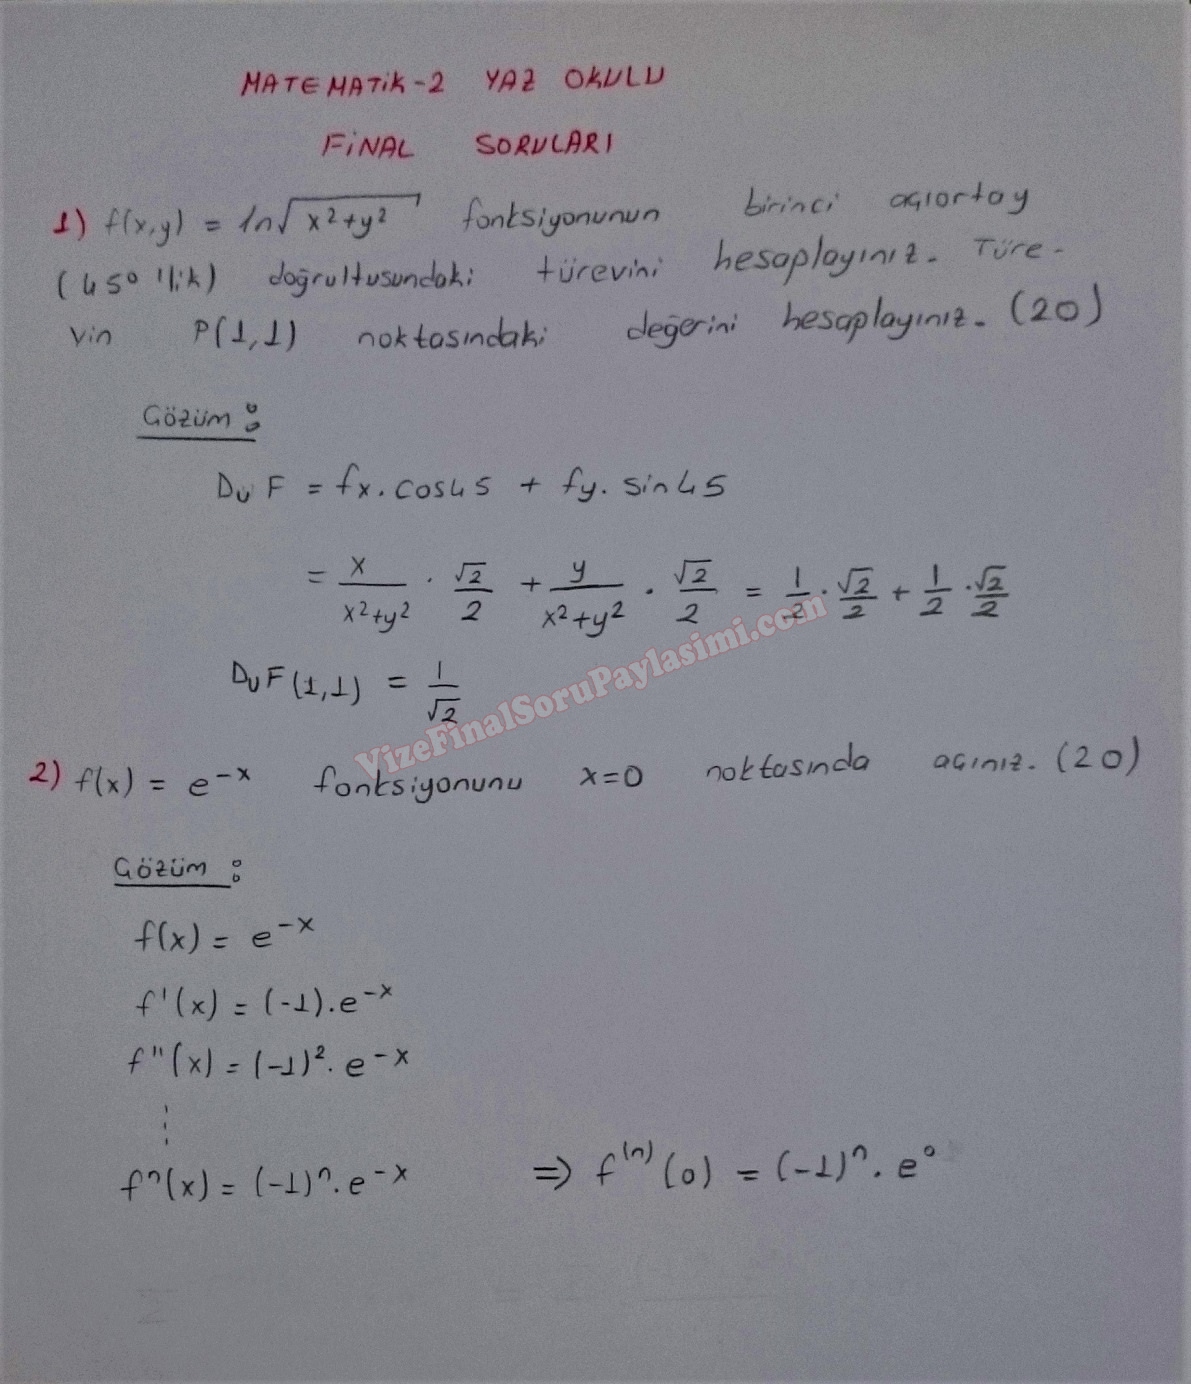 MATEMATİK-2 YAZ OKULU
FİNAL SORULARI
1) f(x,y) = ln√(x²+y²) fonksiyonunun birinci açıortay
(45° 'lik) doğrultusundaki türevini hesaplayınız. Türe-
vin P(1,1) noktasındaki değerini hesaplayınız. (20)
Çözüm:
DuF = fx.cos45 + fy.sin45
= x/(x²+y²) . √2/2 + y/(x²+y²) . √2/2 = 1/2 . √2/2 + 1/2 . √2/2
DuF(1,1) = 1/√2
VizeFinalSoruPaylasimi.com
2) f(x) = e^-x fonksiyonunu x=0 noktasında açınız. (20)
Çözüm:
f(x) = e^-x
f'(x) = (-1).e^-x
f''(x) = (-1)².e^-x
⋮
fⁿ(x) = (-1)ⁿ.e^-x ⇒ f⁽ⁿ⁾(0) = (-1)ⁿ.e⁰